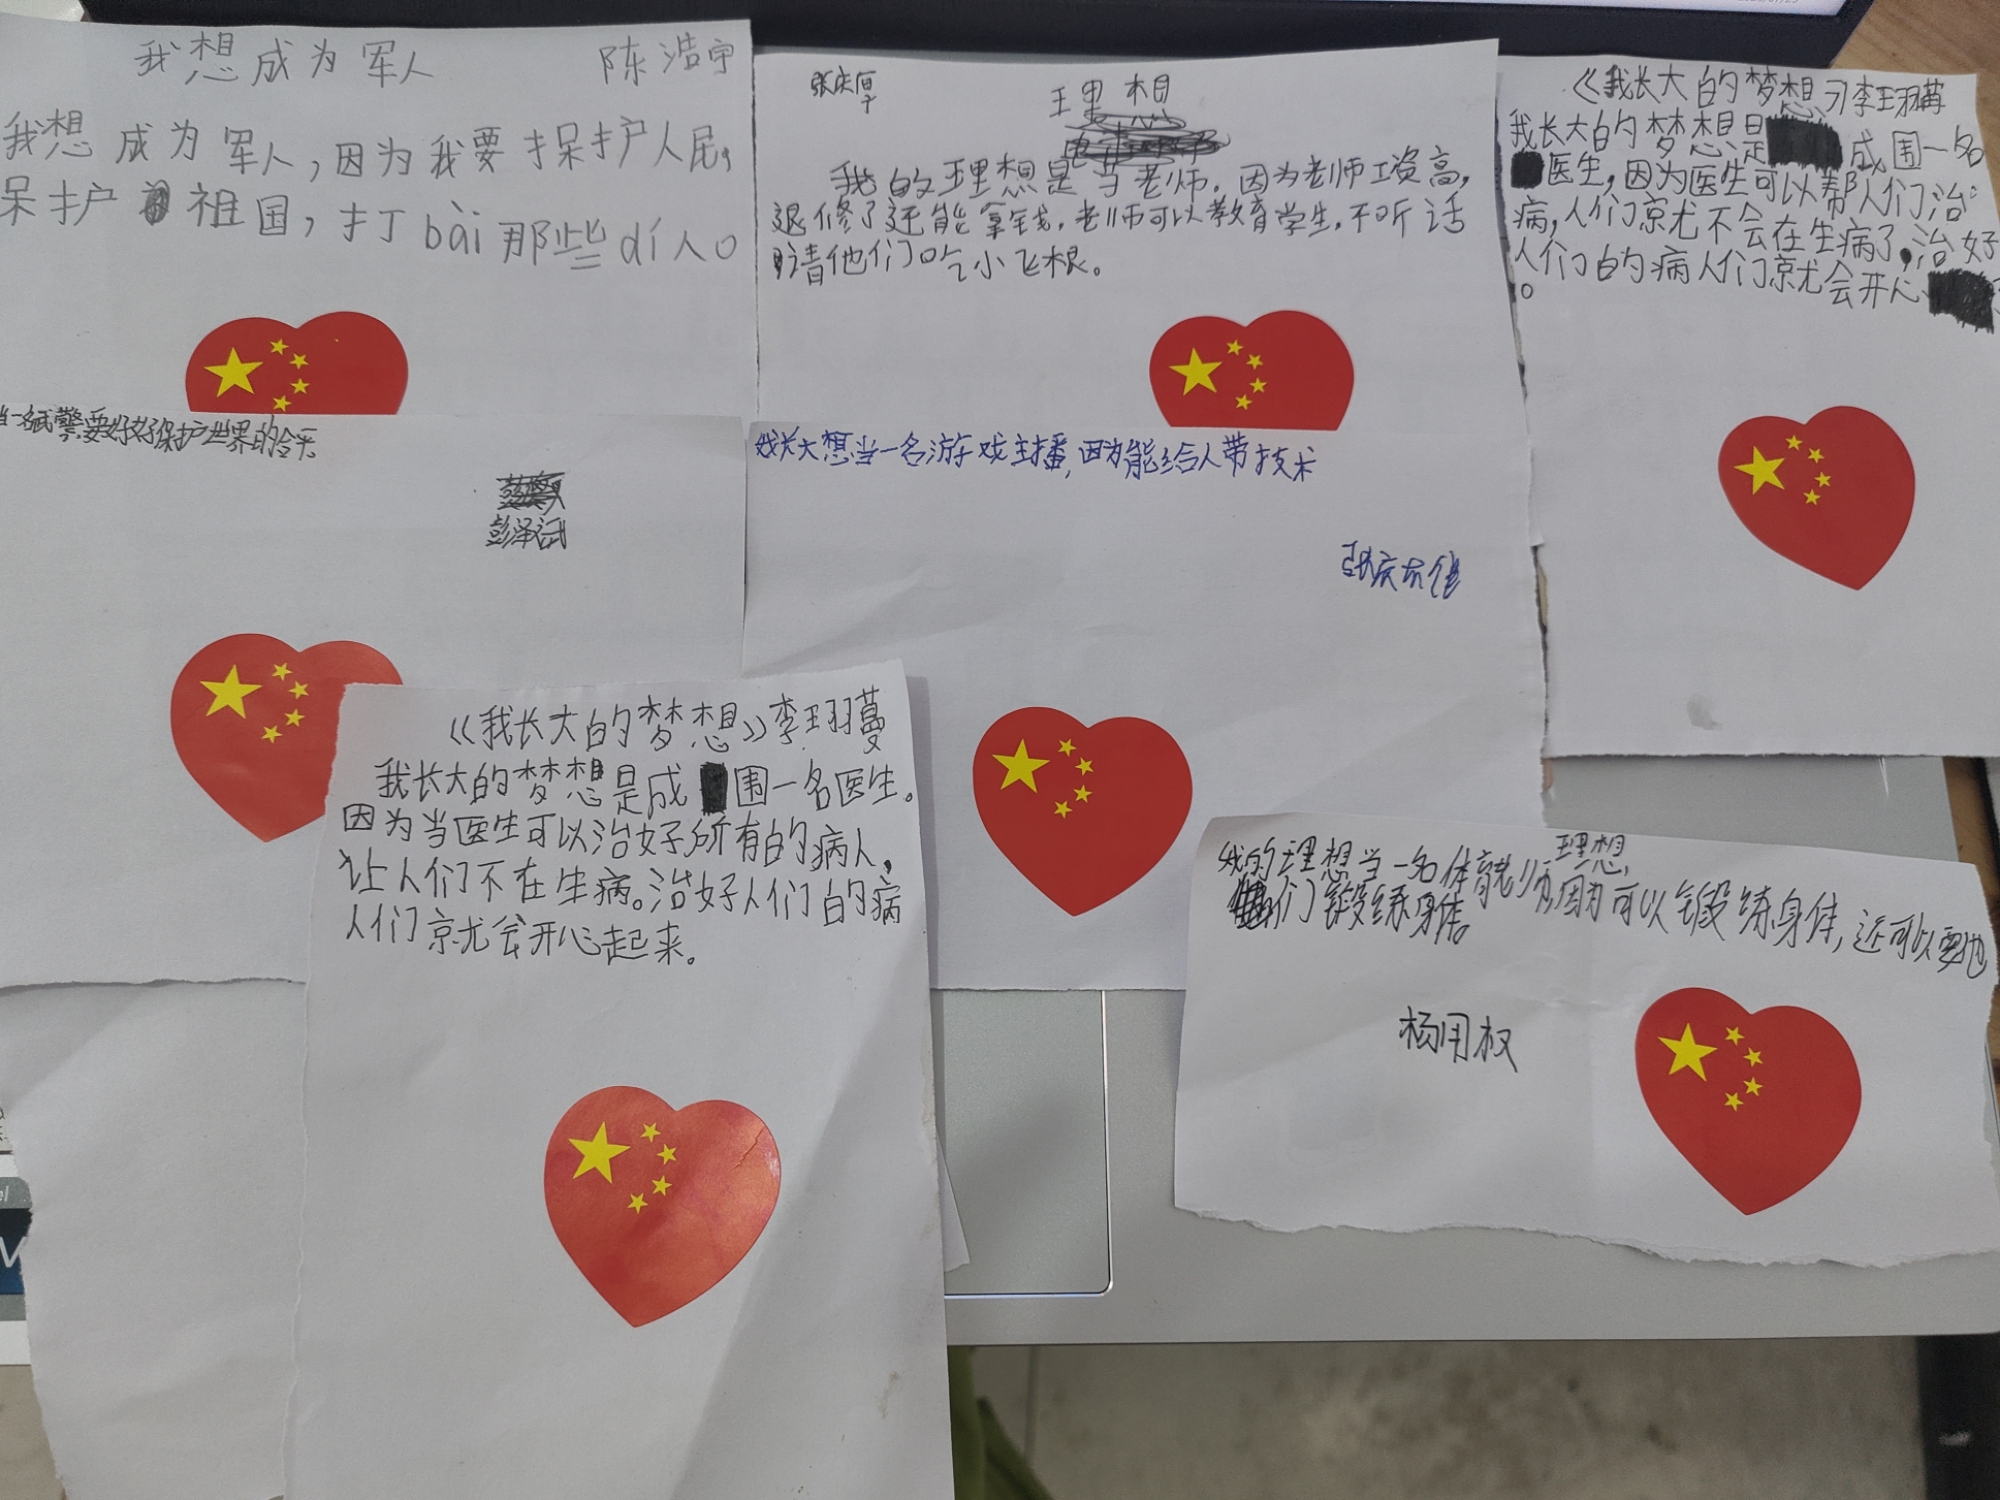 我想成为军人 陈浩宇
我想成为军人，因为我要保护人民，
保护祖国，打bài那些dí人。
张庆厚
理想
我的理想是当老师。因为老师工资高，
退修了还能拿钱。老师可以教育学生，不听话
请他们吃小飞棍。
《我长大的梦想》李玥蔓
我长大的梦想是 成围一名
医生，因为医生可以帮人们治
病，人们就不会在生病了，治好
人们的病人们就会开心
。
当一名武警要好好保护世界的令平。
彭泽斌
我长大想当一名游戏主播，因为能给人带技术
张庆
《我长大的梦想》李玥蔓
我长大的梦想是成围一名医生。
因为当医生可以治好所有的病人，
让人们不在生病。治好人们的病
人们就会开心起来。
理想
我的理想当一名体育 因为可以锻练身体，还可以要他
们锻练身体。
杨用权